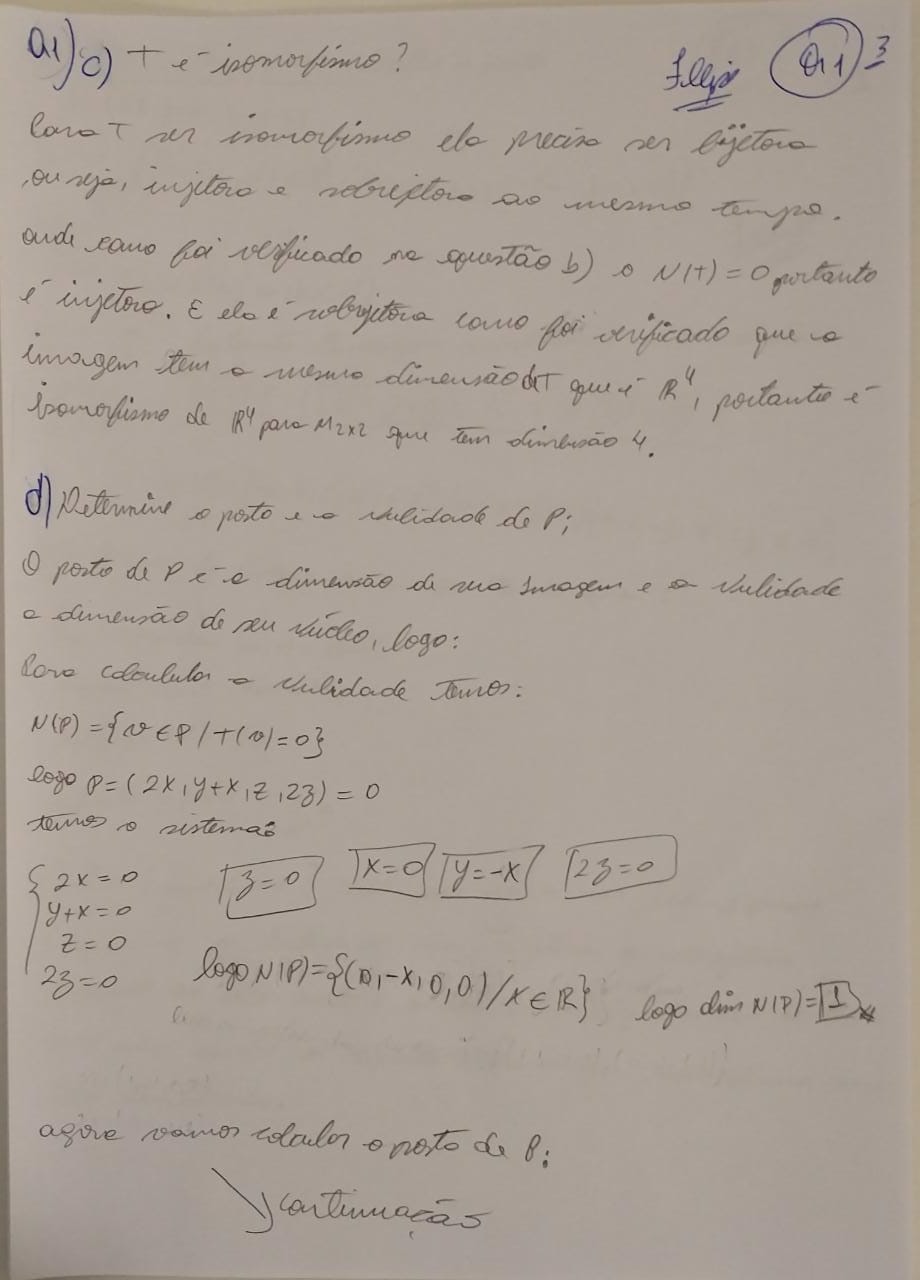 Q1) c) T é isomorfismo?
Felipe Q1) 3
Para T ser isomorfismo ela precisa ser bijetora
, ou seja, injetora e sobrejetora ao mesmo tempo.
onde como foi verificado na questão b) o N(T) = 0 portanto
é injetora. E ela é sobrejetora como foi verificado que a
imagem tem a mesma dimensão de T que é ℝ⁴, portanto é
isomorfismo de ℝ⁴ para M2x2 que tem dimensão 4.
d) Determine o posto e a nulidade de P;
O posto de P é a dimensão de sua Imagem e a Nulidade
a dimensão de seu Núcleo, logo:
Para calcular a Nulidade temos:
N(P) = {v ∈ P / T(v) = 0}
logo P = (2x, y+x, z, 2z) = 0
temos o sistema:
{ 2x = 0
y+x = 0
z = 0
2z = 0
z = 0 x = 0 y = -x 2z = 0
logo N(P) = {(0, -x, 0, 0) / x ∈ ℝ} logo dim N(P) = 1
agora vamos calcular o posto de P:
continuação